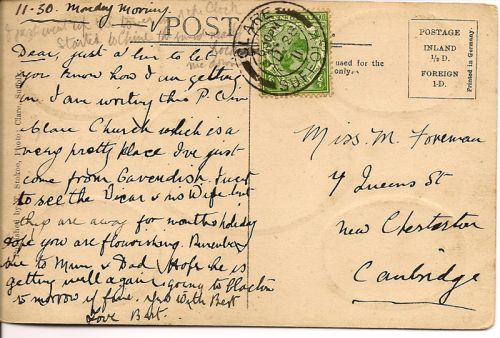 11-30. Monday Morning
I just went up the tower & the Clock
started to Chime the
POST
Dear, just a line to let
you know how I am getting
on. I am writing this P.C. in
Clare Church which is a
very pretty place I've just
come from Cavendish, went
to see the Vicar & his Wife but
they are away for months holiday
Hope you are flourishing. Remember
me to Mum & Dad Hope he is
getting well again. going to Clacton
tomorrow if fine. with Best
Love Bert.
used for the
only.
POSTAGE
INLAND
½ D.
FOREIGN
1-D.
Printed in Germany.
CLARE
SUFFOLK
Miss. M. Foreman
7 Queens St
New Chesterton
Cambridge
Photo: Clare, Suffolk